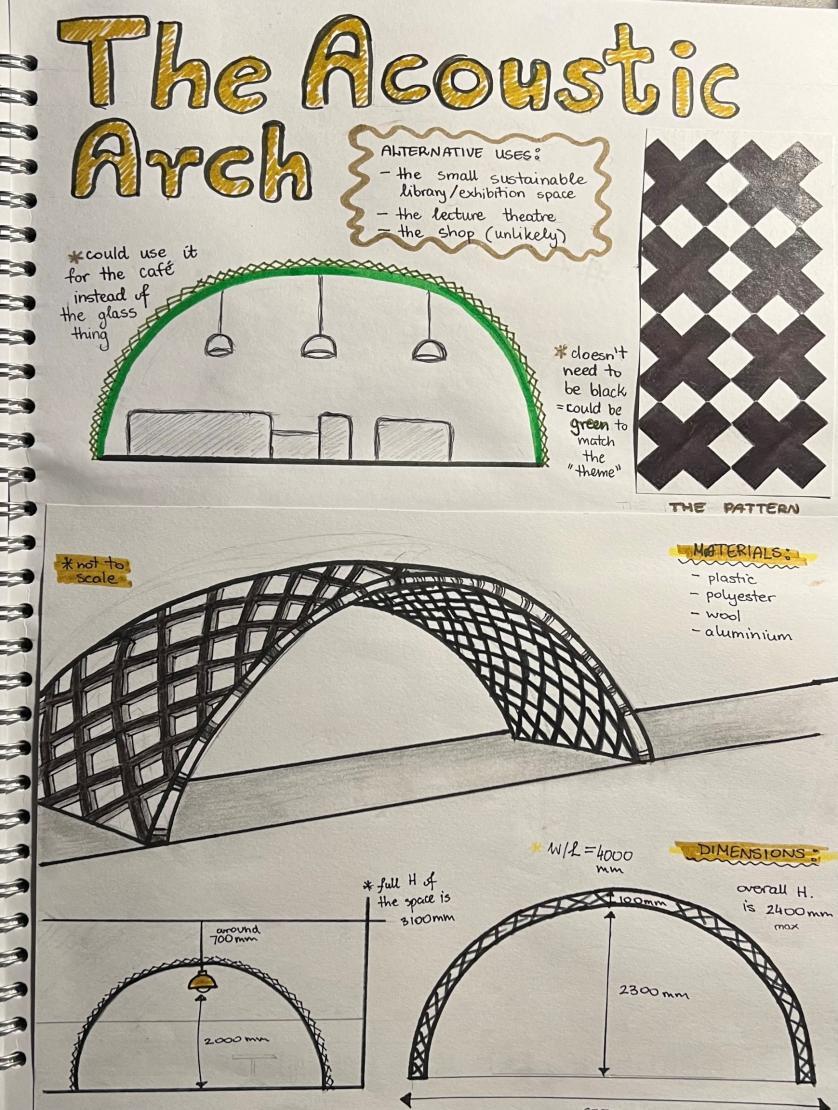 The Acoustic
Arch
ALTERNATIVE USES:
- the small sustainable
library/exhibition space
- the lecture theatre
- the shop (unlikely)
*could use it
for the café
instead of
the glass
thing
*doesn't
need to
be black
=could be
green to
match
the
"theme"
THE PATTERN
*not to
scale
MATERIALS:
- plastic
- polyester
- wool
- aluminium
* W/L=4000
mm
DIMENSIONS:
overall H.
is 2400mm
max
100mm
2300mm
* full H of
the space is
3100mm
around
700mm
2000mm